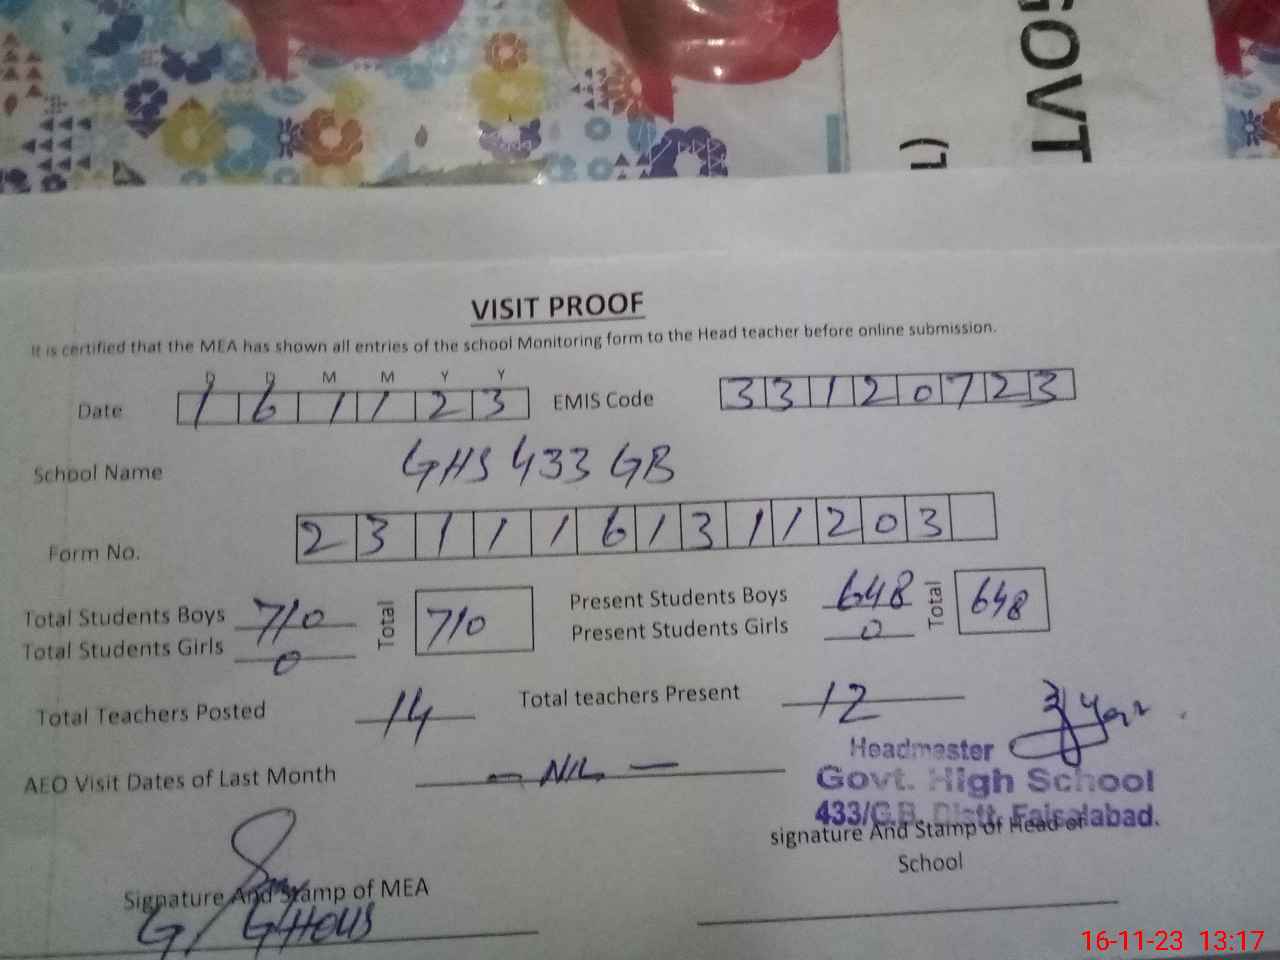 GOVT
L)
VISIT PROOF
It is certified that the MEA has shown all entries of the school Monitoring form to the Head teacher before online submission.
D D M M Y Y
Date 1 6 1 1 2 3 EMIS Code 3 3 1 2 0 7 2 3
School Name GHS 433 GB
Form No. 2 3 1 1 1 6 1 3 1 1 2 0 3
Total Students Boys 710 Total 710 Present Students Boys 648 Total 648
Total Students Girls 0 Present Students Girls 0
Total Teachers Posted 14 Total teachers Present 12
AEO Visit Dates of Last Month - NIL -
Headmaster
Govt. High School
433/G.B. Distt. Faisalabad.
signature And Stamp of Head of
School
Signature And Stamp of MEA
G/ GHOUS
16-11-23 13:17